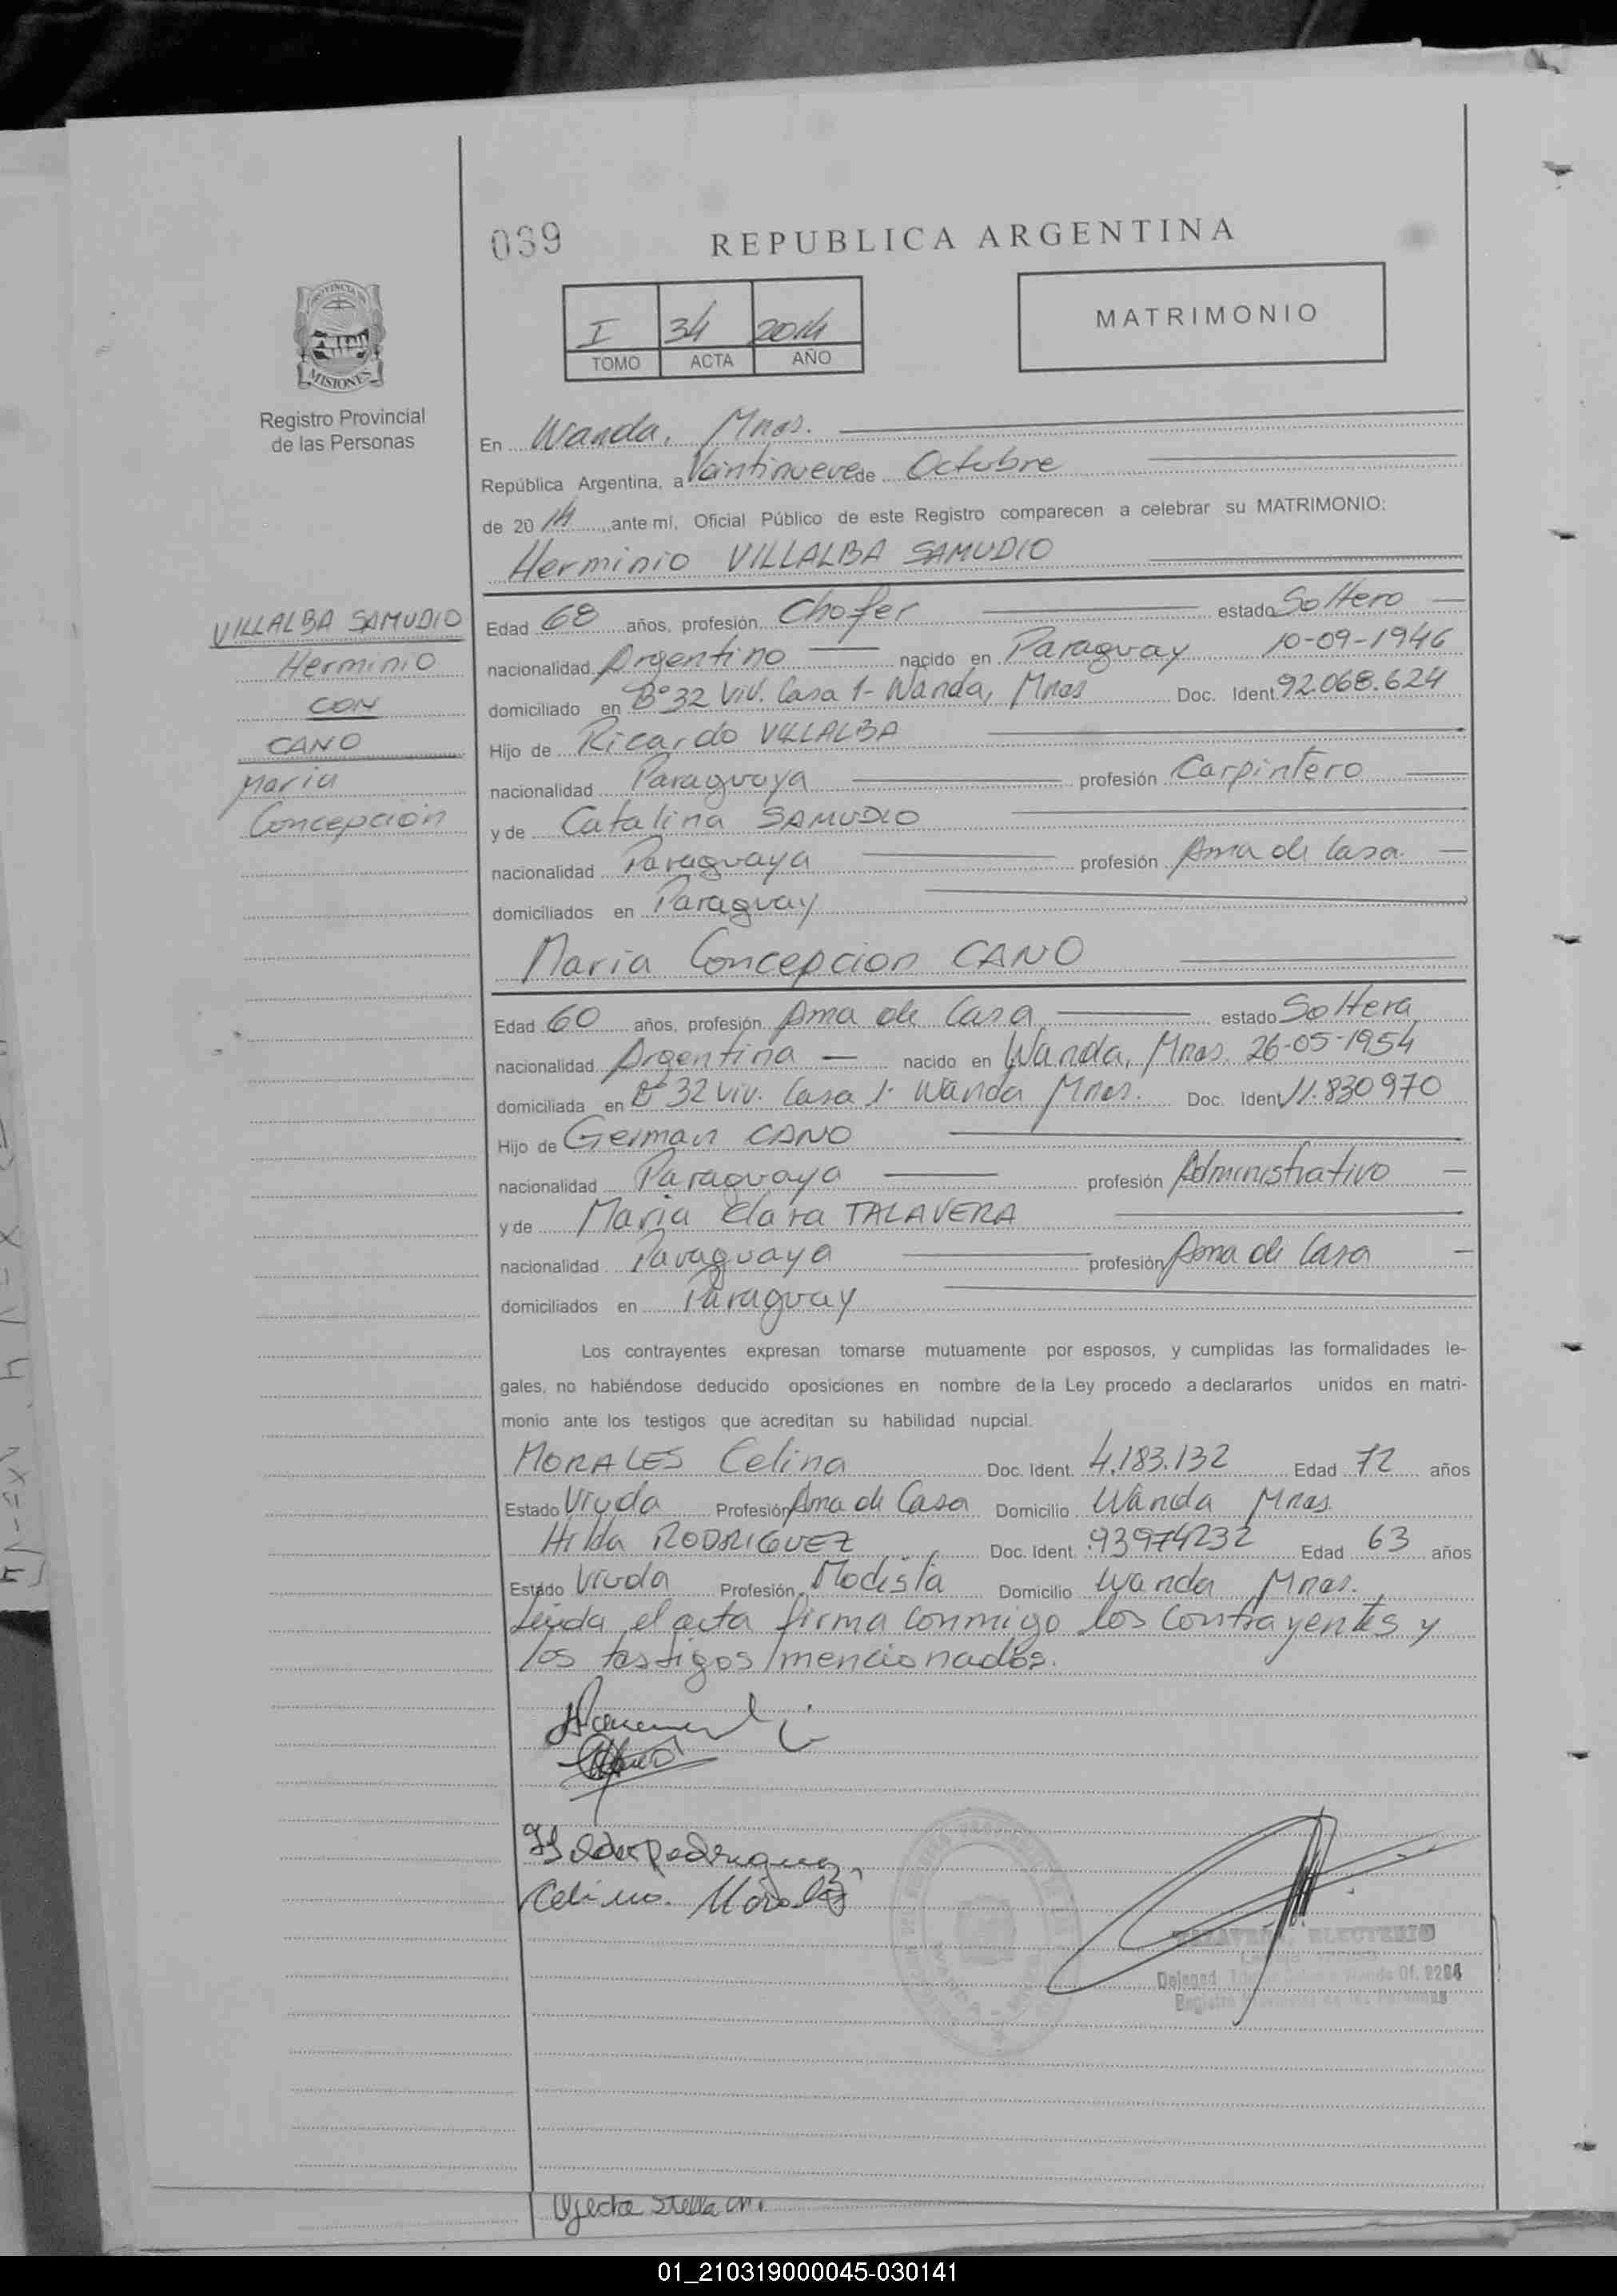 039
REPUBLICA ARGENTINA
PROVINCIA DE
MISIONES
Registro Provincial
de las Personas
I 34 2014
TOMO ACTA AÑO
MATRIMONIO
En Wanda, Mnes.
República Argentina, a Veintinueve de Octubre
de 2014 ante mí, Oficial Público de este Registro comparecen a celebrar su MATRIMONIO:
Herminio VILLALBA SAMUDIO
VILLALBA SAMUDIO
Herminio
CON
CANO
Maria
Concepción
Edad 68 años, profesión Chofer estado Soltero
nacionalidad Argentino nacido en Paraguay 10-09-1946
domiciliado en B° 32 Viv. Casa 1- Wanda, Mnes Doc. Ident. 92.068.624
Hijo de Ricardo VILLALBA
nacionalidad Paraguaya profesión Carpintero
y de Catalina SAMUDIO
nacionalidad Paraguaya profesión Ama de Casa.
domiciliados en Paraguay
Maria Concepcion CANO
Edad 60 años, profesión Ama de Casa estado Soltera
nacionalidad Argentina nacido en Wanda, Mnes. 26-05-1954
domiciliada en B° 32 Viv. Casa 1- Wanda Mnes. Doc. Ident. 11.830970
Hijo de German CANO
nacionalidad Paraguaya profesión Administrativo
y de Maria Clara TALAVERA
nacionalidad Paraguaya profesión Ama de Casa
domiciliados en Paraguay
Los contrayentes expresan tomarse mutuamente por esposos, y cumplidas las formalidades le-
gales, no habiéndose deducido oposiciones en nombre de la Ley procedo a declararlos unidos en matri-
monio ante los testigos que acreditan su habilidad nupcial.
MORALES Celina Doc. Ident. 4.183.132 Edad 72 años
Estado Viuda Profesión Ama de Casa Domicilio Wanda Mnes.
Hilda RODRIGUEZ Doc. Ident. 93974232 Edad 63 años
Estado Viuda Profesión Modista Domicilio Wanda Mnes.
Leida el acta firma conmigo los contrayentes y
los testigos mencionados.
Hilda Rodriguez
Celina Morales
Of. 2284
Stella M.
01_210319000045-030141